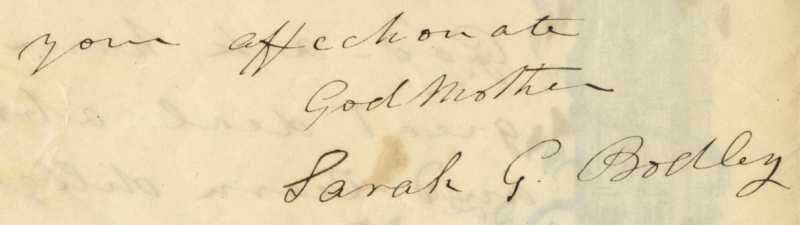 your affectionate
God Mother
Sarah G. Bodley